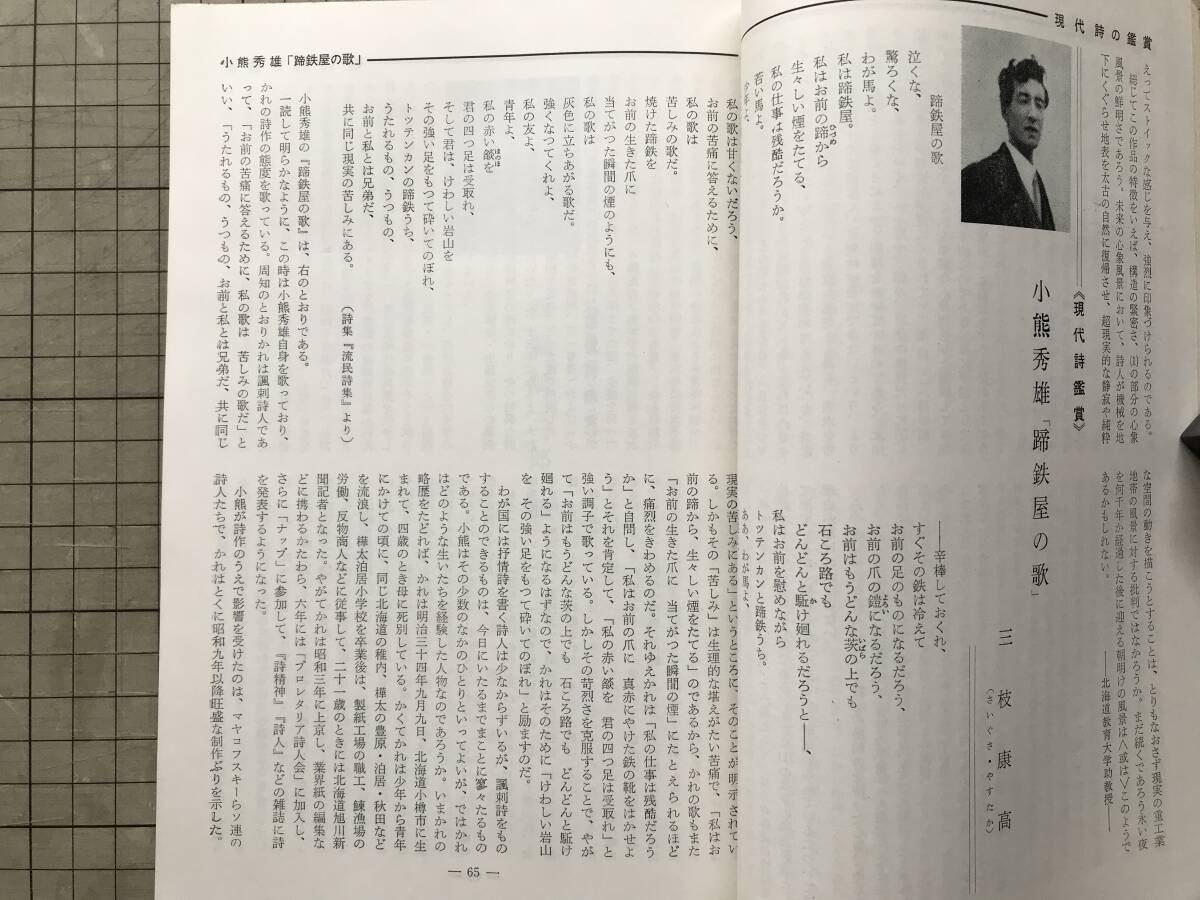 現代詩の鑑賞
えってストイックな感じを与え、強烈に印象づけられるのである。
総じてこの作品の特徴をいえば、構造の緊密さ、(1)の部分の心象
風景の鮮明さであろう。未来の心象風景において、詩人が機械を地
下にくぐらせ地表を太古の自然に復帰させ、超現実的な静寂や純粋
な空間の動きを描こうとすることは、とりもなおさず現実の重工業
地帯の風景に対する批判ではなかろうか。まだ続くであろう永い夜
を何千年か経過した後に迎える朝明けの風景は〈或は〉このようで
あるかもしれない。 ——北海道教育大学助教授——
《現代詩鑑賞》
小熊秀雄「蹄鉄屋の歌」
三枝康高
(さいぐさ・やすたか)
蹄鉄屋の歌
泣くな、
驚ろくな、
わが馬よ。
私は蹄鉄屋。
私はお前の蹄から
ひづめ
生々しい煙をたてる、
私の仕事は残酷だろうか。
若い馬よ。
少年よ、
——辛棒しておくれ、
すぐその鉄は冷えて
お前の足のものになるだろう、
お前の爪の鎧になるだろう、
よろい
お前はもうどんな茨の上でも
いばら
石ころ路でも
どんどんと駈け廻れるだろうと——、
か
私はお前を慰めながら
トッテンカンと蹄鉄うち。
ああ、わが馬よ、
小熊秀雄「蹄鉄屋の歌」
私の歌は甘くないだろう、
お前の苦痛に答えるために、
私の歌は
苦しみの歌だ。
焼けた蹄鉄を
お前の生きた爪に
当てがつた瞬間の煙のようにも、
私の歌は
灰色に立ちあがる歌だ。
強くなつてくれよ、
私の友よ、
青年よ、
私の赤い燄を
ほのほ
君の四つ足は受取れ、
そして君は、けわしい岩山を
その強い足をもつて砕いてのぼれ、
トッテンカンの蹄鉄うち、
うたれるもの、うつもの、
お前と私とは兄弟だ、
共に同じ現実の苦しみにある。
(詩集『流民詩集』より)
小熊秀雄の『蹄鉄屋の歌』は、右のとおりである。
一読して明らかなように、この時は小熊秀雄自身を歌っており、
かれの詩作の態度を歌っている。周知のとおりかれは諷刺詩人であ
って、「お前の苦痛に答えるために、私の歌は 苦しみの歌だ」と
いい、「うたれるもの、うつもの、お前と私とは兄弟だ、共に同じ
現実の苦しみにある」というところに、そのことが明示されてい
る。しかもその「苦しみ」は生理的な堪えがたい苦痛で、「私はお
前の蹄から、生々しい煙をたてる」のであるから、かれの歌もまた
「お前の生きた爪に 当てがつた瞬間の煙」にたとえられるほど
に、痛烈をきわめるのだ。それゆえかれは「私の仕事は残酷だろう
か」と自問し、「私はお前の爪に 真赤にやけた鉄の靴をはかせよ
う」とそれを肯定して、「私の赤い燄を 君の四つ足は受取れ」と
強い調子で歌っている。しかしその苛烈さを克服することで、やが
て「お前はもうどんな茨の上でも 石ころ路でも どんどんと駈け
廻れる」ようになるはずなので、かれはそのために「けわしい岩山
を その強い足をもつて砕いてのぼれ」と励ますのだ。
わが国には抒情詩を書く詩人は少なからずいるが、諷刺詩をもの
することのできるものは、今日にいたるまでまことに寥々たるもの
である。小熊はその少数のなかのひとりといってよいが、ではかれ
はどのような生いたちを経験した人物なのであろうか。いまかれの
略歴をたどれば、かれは明治三十四年九月九日、北海道小樽市に生
まれて、四歳のとき母に死別している。かくてかれは少年から青年
にかけての頃に、同じ北海道の稚内、樺太の豊原・泊居・秋田など
を流浪し、樺太泊居小学校を卒業後は、製紙工場の職工、鰊漁場の
労働、反物商人などに従事して、二十一歳のときには北海道旭川新
聞記者となった。やがてかれは昭和三年に上京し、業界紙の編集な
どに携わるかたわら、六年には「プロレタリア詩人会」に加入し、
さらに「ナップ」に参加して、『詩精神』『詩人』などの雑誌に詩
を発表するようになった。
小熊が詩作のうえで影響を受けたのは、マヤコフスキーらソ連の
詩人たちで、かれはとくに昭和九年以降旺盛な制作ぶりを示した。
— 65 —